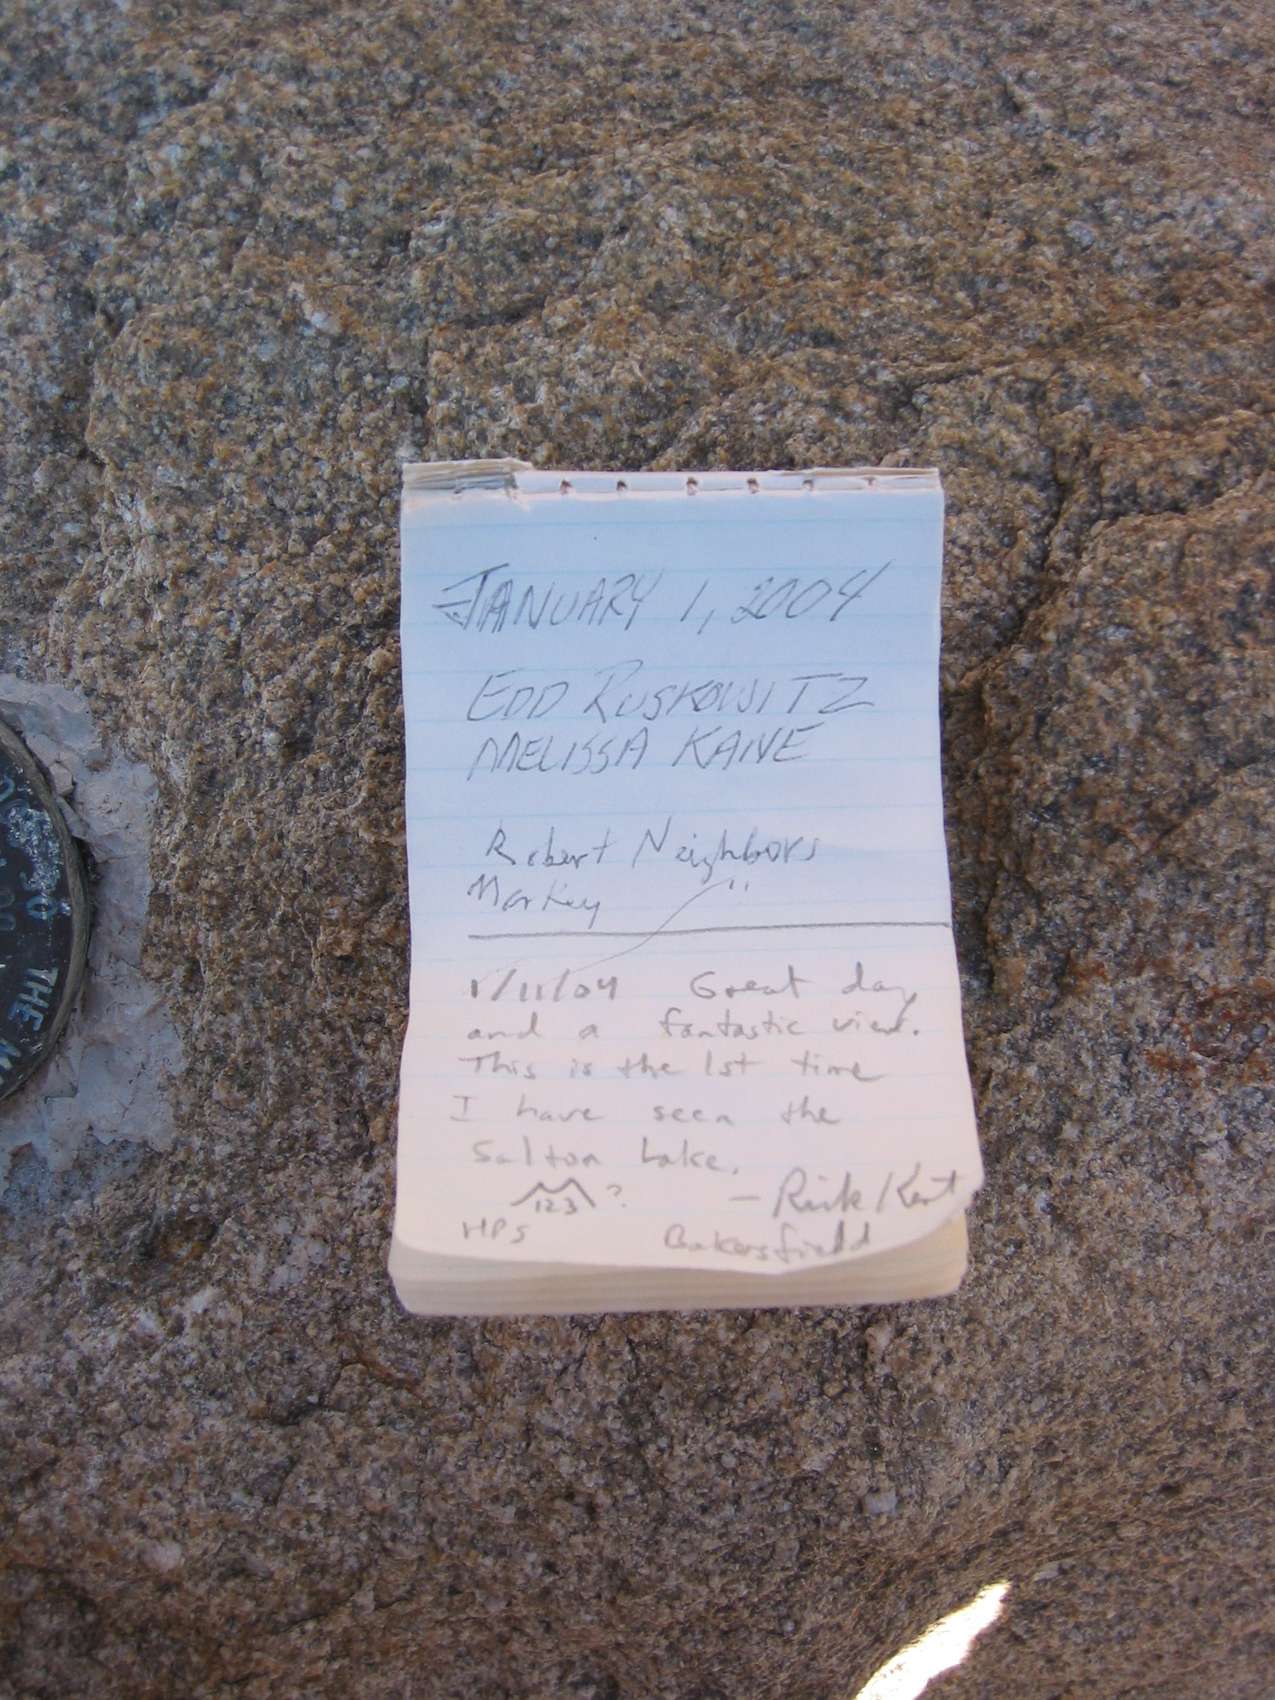 JANUARY 1, 2004
EDD RUSKOWITZ
MELISSA KANE
Robert Neighbors
Markey "
1/11/04 Great day
and a fantastic view.
This is the 1st time
I have seen the
Salton Lake.
123 ? — Rick Kent
HPS Bakersfield
THE